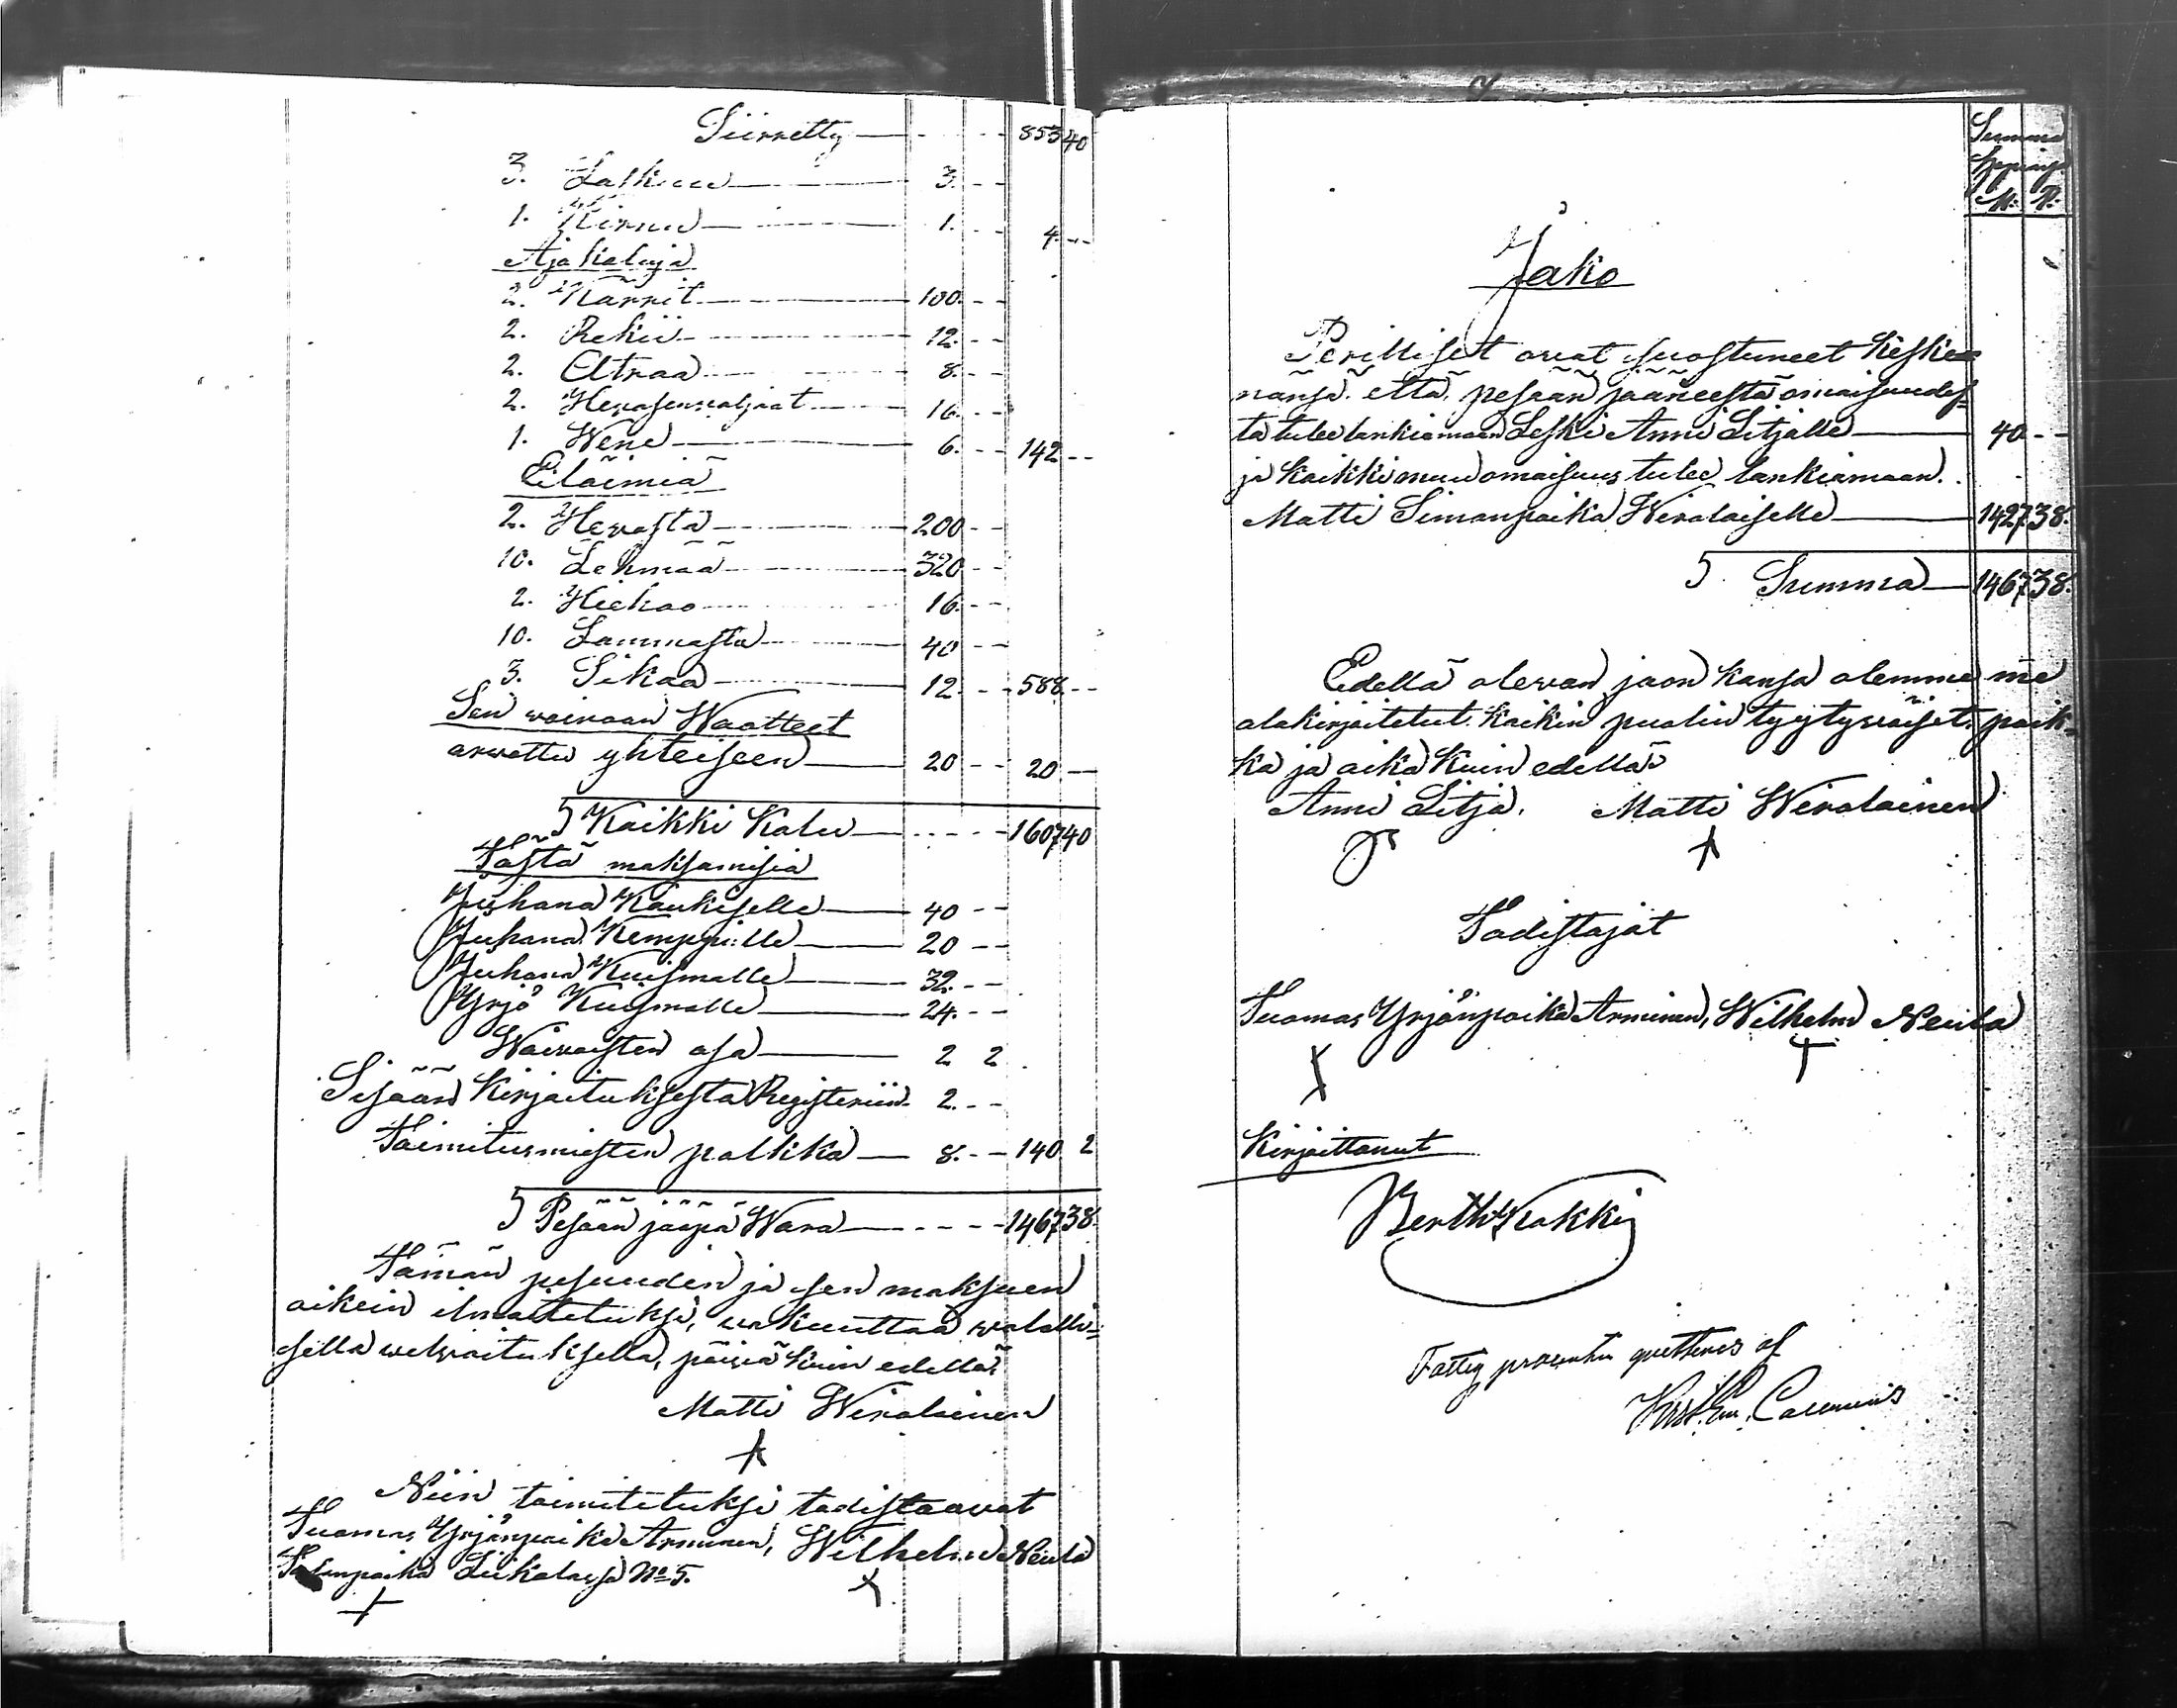 Siirretty — 853 40
3. 3. --
1. Kirnu — 1. -- 4. --
Ajo kaluja
2. Kärrit — 100. --
2. Rekiä — 12. --
2. Atraa — 8. --
2. Hewosenvaljaat — 16. --
1. Wene — 6. -- 142 --
Eläimiä
2. Hewosta — 200 --
10. Lehmää — 320 --
2. Hiehoo — 16. --
10. Lammasta — 40 --
3. Sikaa — 12. -- 588 --
Sen wainaan Waatteet
arwattu yhteiseen — 20 -- 20 --
S Kaikki Kalu — 1607 40
Tästä maksamisia
Juhana Kaukiselle — 40 --
Juhana Kemppille — 20 --
Juhana Kuismalle — 32. --
Yrjö Kuismalle — 24. --
Waiwaisten osa — 2 2
Sisään Kirjoituksesta Registeriin 2. --
Toimitusmiesten palkka — 8. -- 140 2
S Pesään jääpä Wara — 1467 38.
Tämän pesuuden ja sen maksuen
oikein ilmoitetuksi, wakuuttaa walalli-
sella welwoituksella, päiwä kuin edellä
Matti Wirolainen
Niin toimitetuksi todistaawat
Tuomas Yrjönpoika Arminen, Wilhelm Neula
Liikolassa No 5.
Summa
M. P.
Jako
Perilliset owat suostuneet keske
nänsä että pesään jääneestä omaisuudes=
ta tulee lankiamaan Leski Anni Litjalle — 40 --
ja kaikki muu omaisuus tulee lankiamaan
Matti Simonpoika Wirolaiselle — 1427 38.
S Summa — 1467 38.
Edellä olewan jaon kansa olemme me
alakirjoitetut kaikin puolin tyytywäiset, paik=
ka ja aika kuin edellä
Anni Litja. Matti Wirolainen
Todistajat
Tuomas Yrjönpoika Arminen, Wilhelm Neula
Kirjoittanut
Berth Kokki
Fattig procenten quitteras af